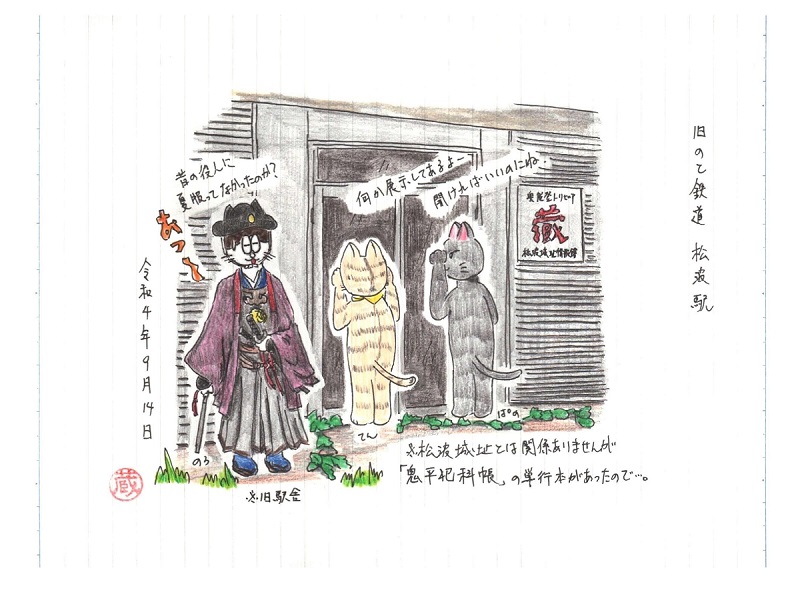 旧のと鉄道 松波駅
昔の役人に
夏服ってなかったのか?
あっつー
何か展示してあるよー
開ければいいのにね。
奥能登トリビア
蔵
松波城址情報館
令和4年9月14日
のろ
てん
ぱの
※旧駅舎
※松波城址とは関係ありませんが
「鬼平犯科帳」の単行本があったので…。
蔵